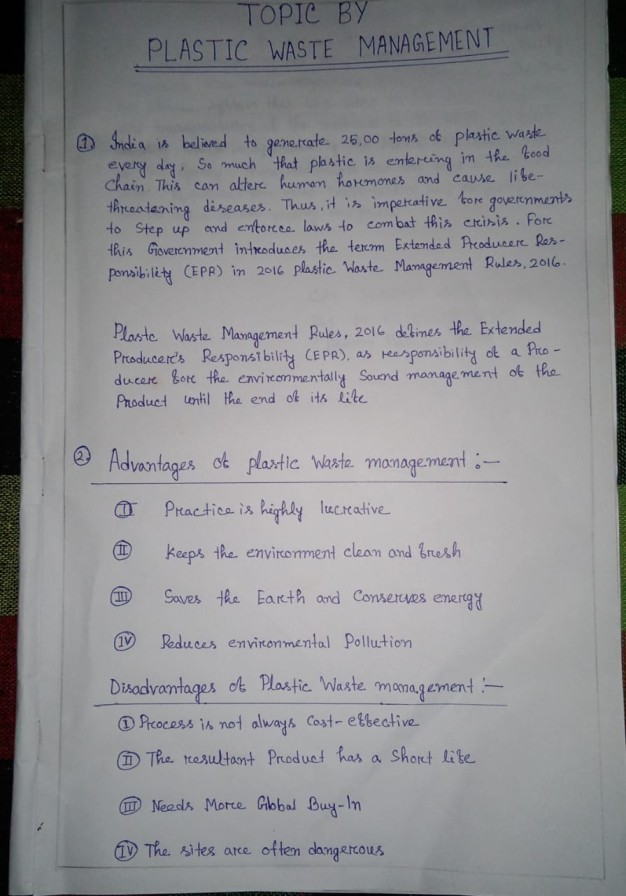 TOPIC BY
PLASTIC WASTE MANAGEMENT
① India is belived to generate 25,00 tons of plastic waste
every day, So much that plastic is entering in the food
Chain. This can alter human hormones and cause life-
threatening diseases. Thus, it is imperative for governments
to Step up and enforce laws to combat this crisis. For
this Government introduces the term Extended Producer Res-
ponsibility (EPR) in 2016 plastic Waste Management Rules, 2016.
Plastc Waste Management Rules, 2016 defines the Extended
Producer's Responsibility (EPR), as responsibility of a Pro-
ducer for the environmentally Sound management of the
Product until the end of its life
② Advantages of plastic Waste management :-
Ⓘ Practice is highly lucrative
Ⓘ Keeps the environment clean and fresh
III Saves the Earth and Conserves energy
IV Reduces environmental Pollution
Disadvantages of Plastic Waste management :-
I Process is not always Cost-effective
II The resultant Product has a Short life
III Needs More Global Buy-In
IV The sites are often dangerous